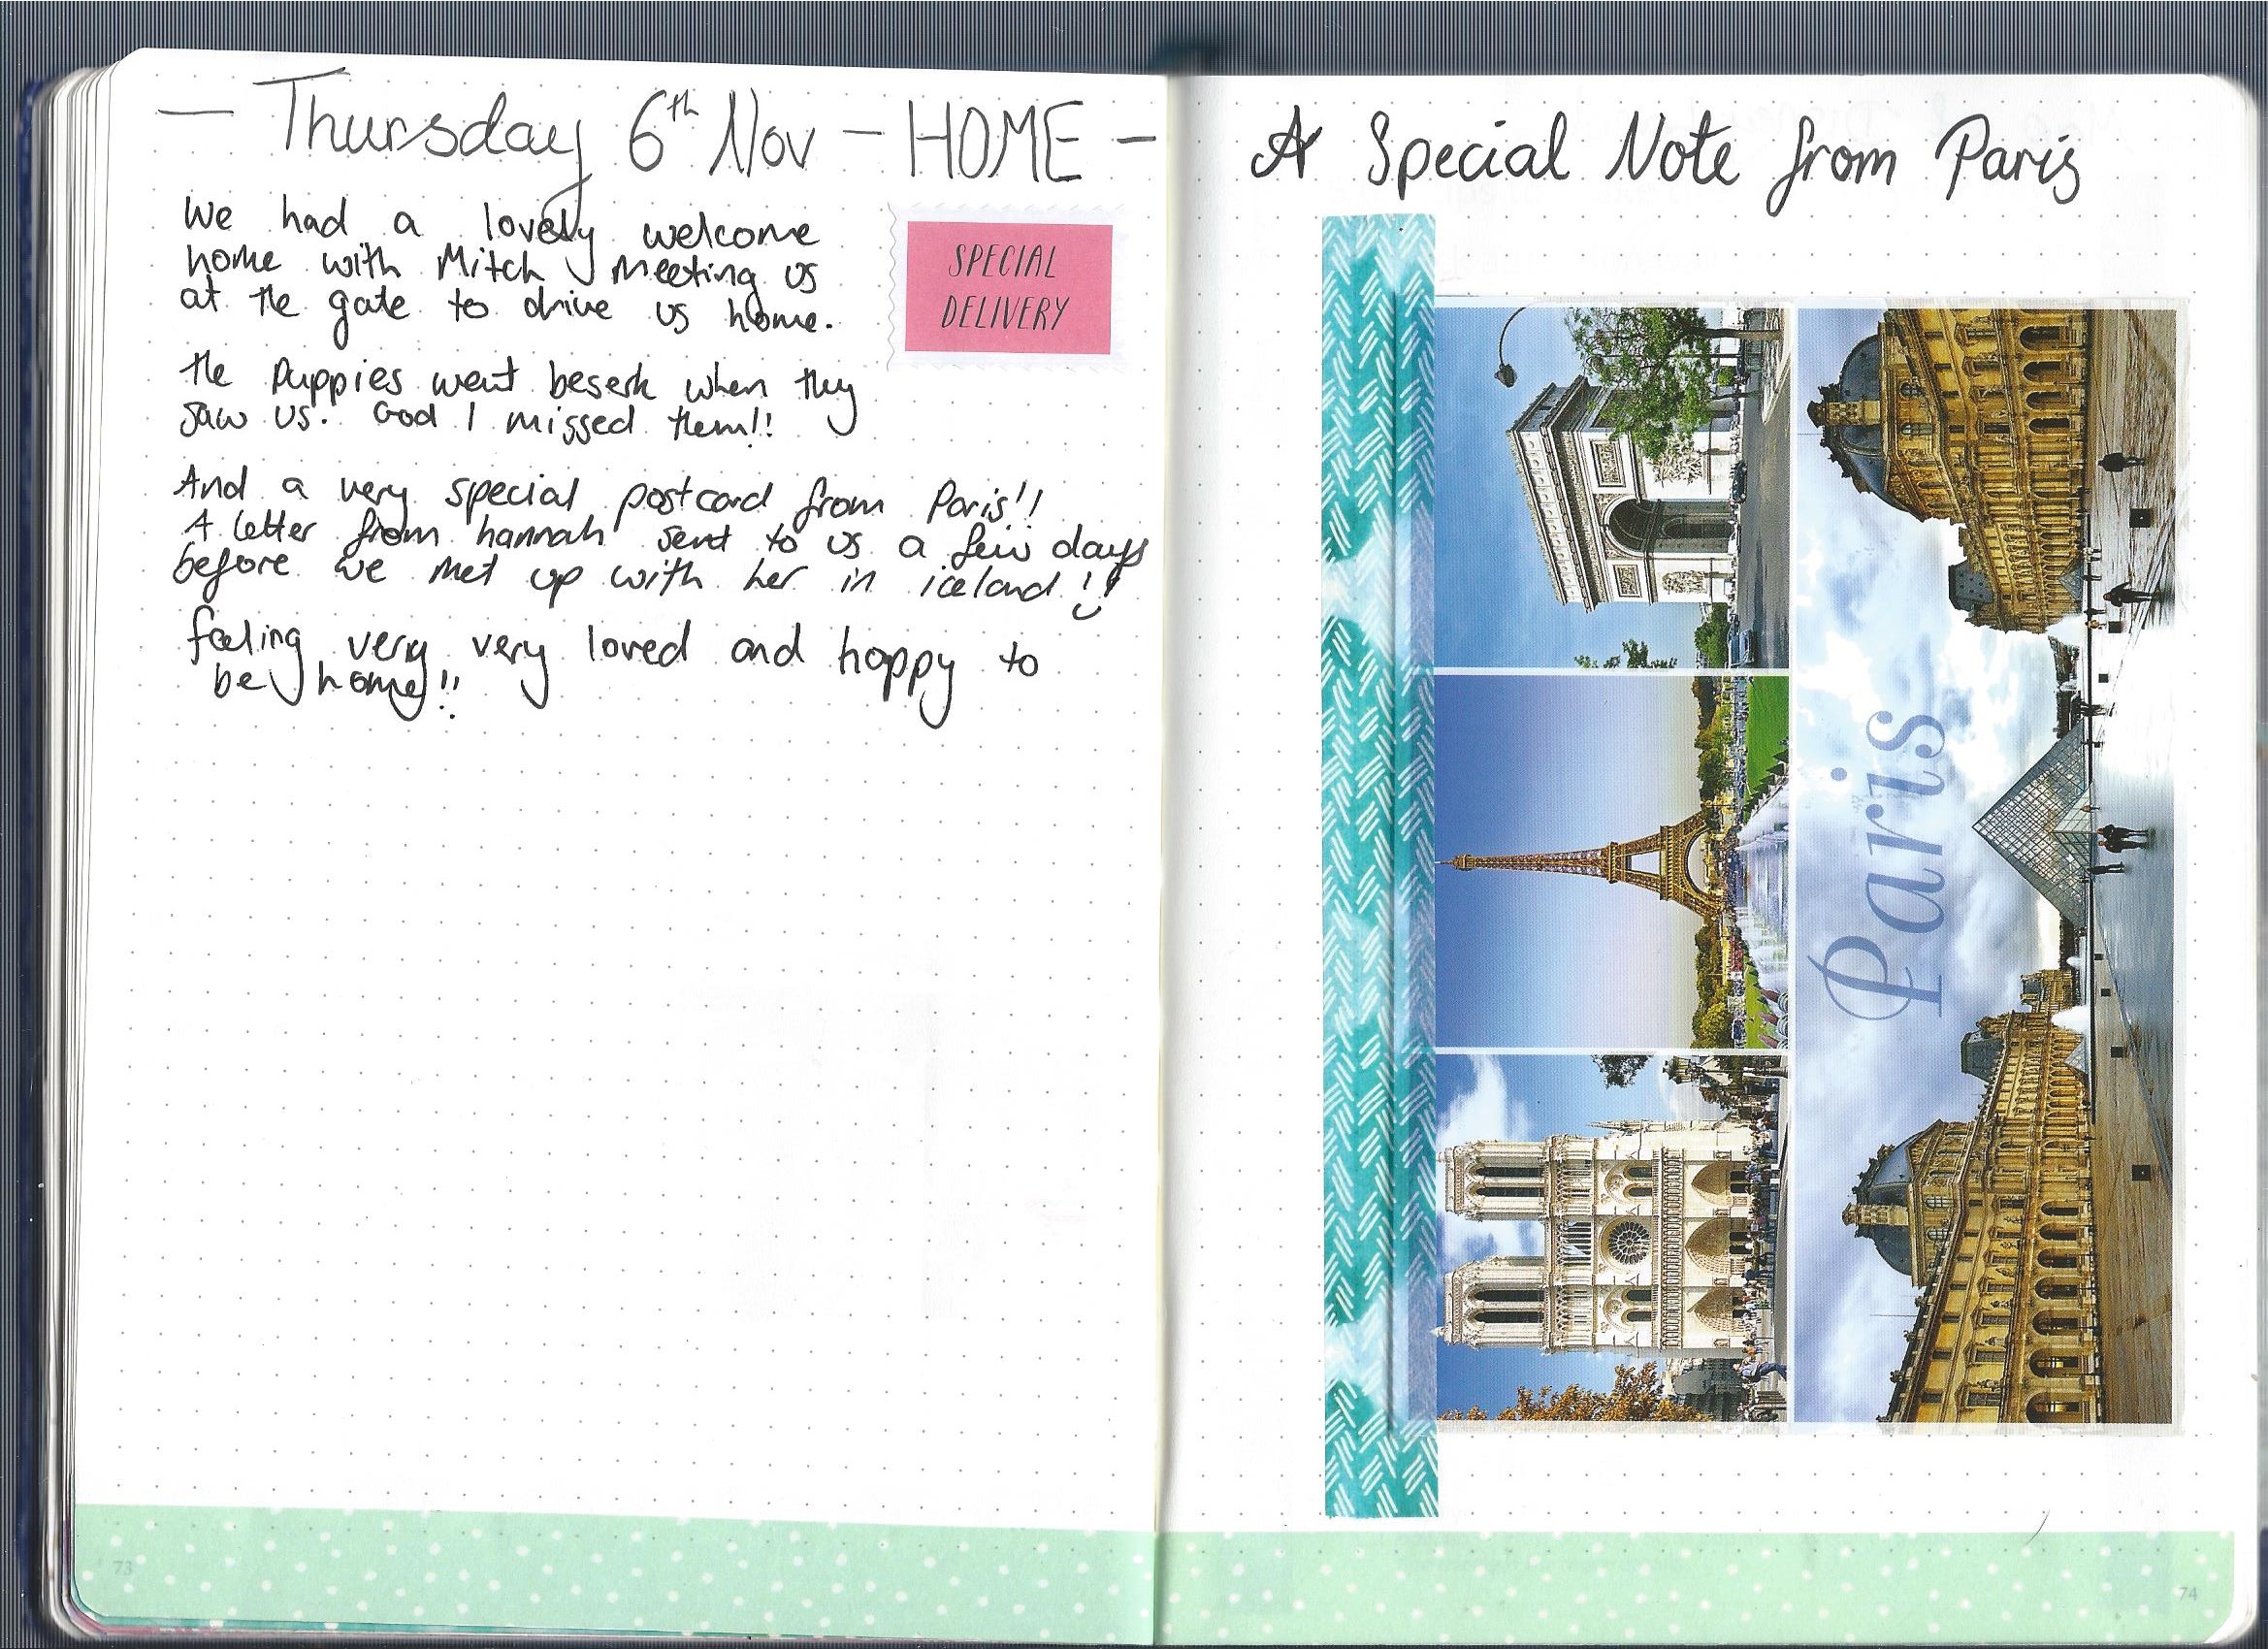 — Thursday 6th Nov — HOME —
We had a lovely welcome
home with Mitch meeting us
at the gate to drive us home.
the puppies went beserk when they
saw us. God I missed them!!
And a very special postcard from Paris!!
A letter from hannah sent to us a few days
before we met up with her in iceland!!
feeling very very loved and happy to
be home!!
SPECIAL
DELIVERY
73
A Special Note from Paris
Paris
74